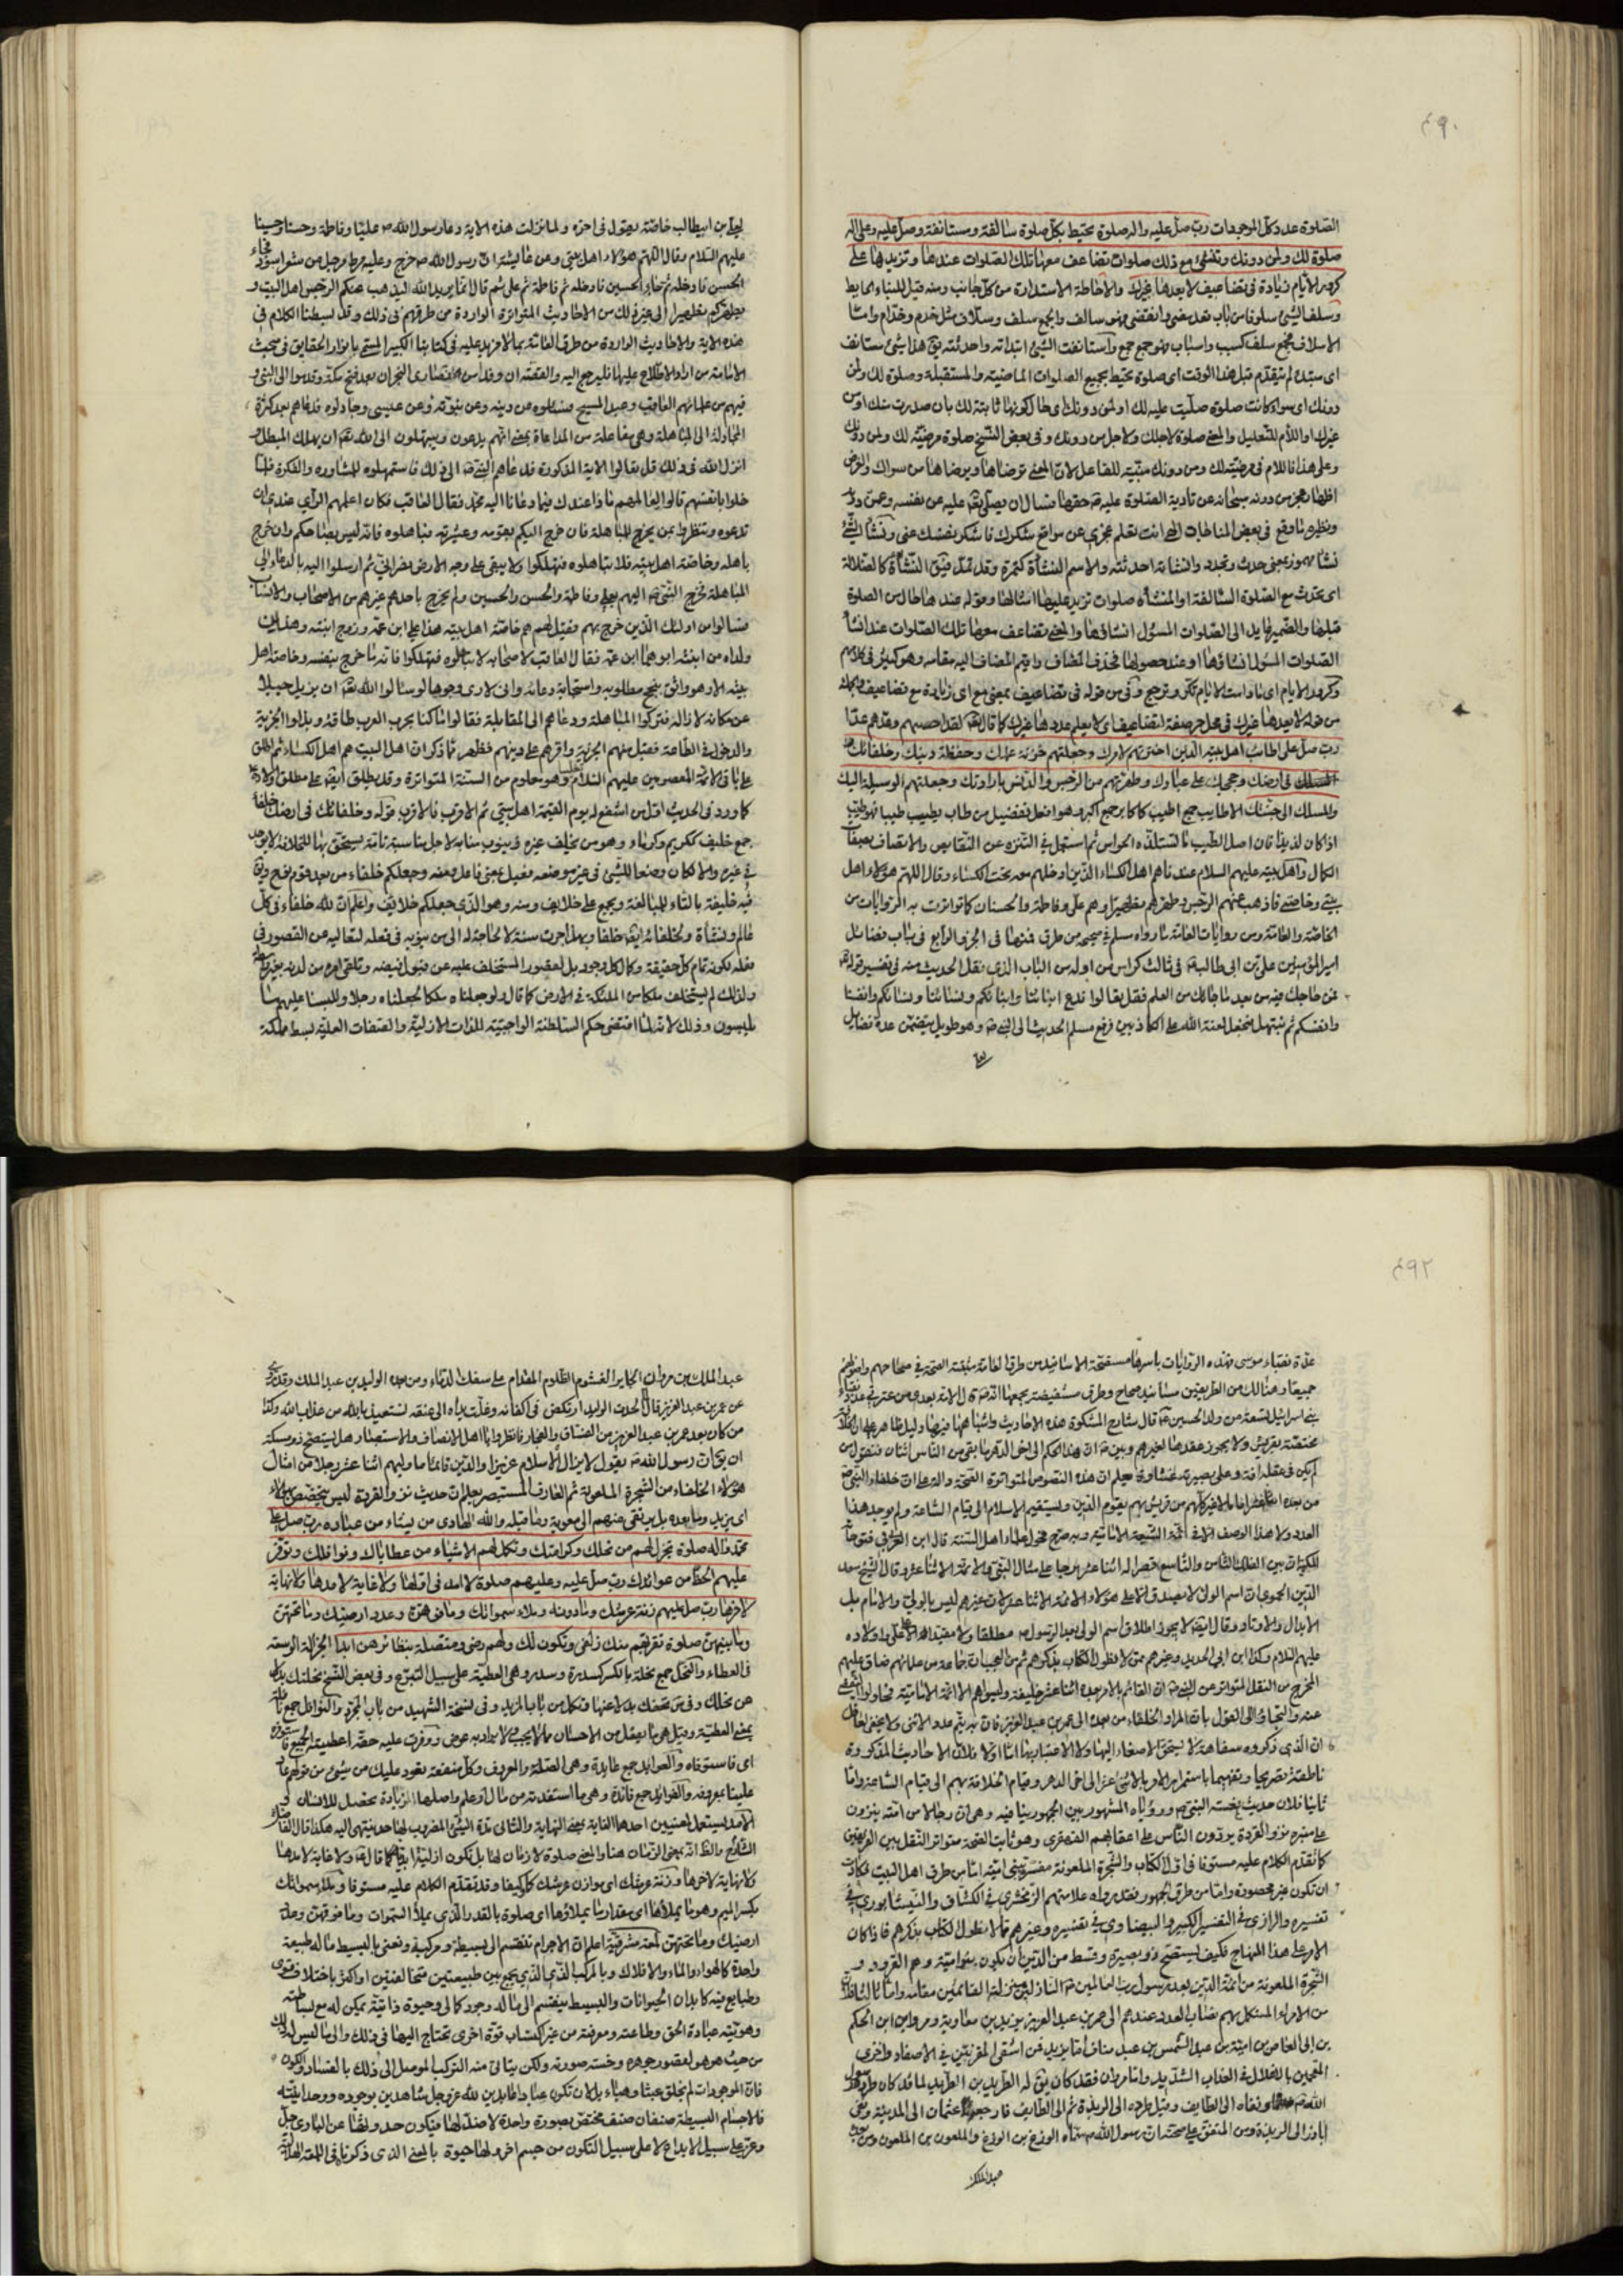 ٤٩٠
الصلوة عدد وكل الموجودات رب صل عليه واله صلوة تحيط بكل صلوة سالفة ومستانفة وصل عليه وعلى اله
صلوة لك ولمن دونك وتنشئ مع ذلك صلوات تضاعف معها تلك الصلوات عندها وتزيدها على
كرور الايام زيادة في تضاعيف لا يعدها غيرك والاحاطة الاستدارة من كل جانب ومنه قيل للبناء الحايط
وسلف الشئ سلوفا من باب قعد مضى وانقضى فهو سالف والجمع سلف وسلاف مثل خدم وخدام واما
الاسلاف فجمع سلف كسبب واسباب فهو جمع جمع واستانفت الشئ ابتداته واحدثته يق هذا شئ مستانف
اى مبتدا لم يتقدم قبل هذا الوقت اى صلوة تحيط بجميع الصلوات الماضية والمستقبلة وصلوة لك ولمن
دونك اى سواء كانت صلوة صليت عليه لك او لمن دونك اى حال كونها ثابتة لك بان صدرت منك او من
غيرك او اللام للتعليل والمعنى صلوة لاجلك ولاجل من دونك وفى بعض النسخ صلوة مرضية لك ولمن دونك
وعلى هذا فاللام فى مرضية لك ومن دونك مبنية للفاعل لان المعنى ترضاها ويرضاها من سواك والغرض
اظهار عجز من دونه سبحانه عن تادية الصلوة عليه حقها فسال ان يصلى عليه عن نفسه وعمن دونه
ونظيره ما وقع فى بعض المناجات الهى انت تعلم عجزى عن مواقع شكرك فاشكر نفسك عنى ونشا الشئ
نشا مهموز بمعنى حدث وتجدد وانشاته احدثته والاسم النشأة كتمرة وقد تمد فيق النشاءة كالضلالة
اى يحدث مع الصلوة السالفة او المنشأه صلوات تزيد عليها امثالها وقوله عندها حال من الصلوة
قبلها والضمير عايد الى الصلوات المسؤل انشاؤها والمعنى تضاعف معها تلك الصلوات عند انشأ
الصلوات المسؤل انشاؤها او عند حصولها فحذف المضاف واقيم المضاف اليه مقامه وهو كثير فى كلامهم
وكرور الايام اى ما دامت الايام تكر وترجع وفى من قوله فى تضاعيف بمعنى مع اى زيادة مع تضاعيف
من قوله لا يعدها غيرك فى محل جر صفة لتضاعيف اى لا يعلم عددها غيرك كما قال لقد احصيهم وعدهم عدا
رب صل على اطائب اهل بيته الذين اخترتهم لامرك وجعلتهم خزنة علمك وحفظة دينك وخلفائك
فى ارضك وحججك على عبادك وطهرتهم من الرجس والدنس بارادتك وجعلتهم الوسيلة اليك
والمسلك الى جنتك الاطايب جمع اطيب كاكابر جمع اكبر وهو افعل تفضيل من طاب يطيب طيبا فهو طيب
اذا كان لذيذا فان اصل الطيب ما تستلذه الحواس ثم استعمل فى التنزه عن النقايص والاتصاف بصفات
الكمال واهل بيته عليهم السلام عندنا هم اهل الكساء الذين ادخلهم معه تحت الكساء وقال اللهم هؤلاء اهل
بيتى وخاصتى فاذهب عنهم الرجس وطهرهم تطهيرا وهم على وفاطمة والحسنان كما تواترت به الروايات من
الخاصة والعامة ومن روايات العامة ما رواه مسلم فى صحيحه من طرق فمنها فى الجزء الرابع فى باب فضائل
امير المؤمنين على بن ابى طالب فى ثالث كراس من اوله من الباب الذى نقل الحديث منه فى تفسير قوله
فمن حاجك فيه من بعد ما جاءك من العلم فقل تعالوا ندع ابنائنا وابنائكم ونسائنا ونسائكم وانفسنا
وانفسكم ثم نبتهل فنجعل لعنة الله على الكاذبين فرفع مسلم الحديث الى النبى وهو طويل يتضمن عدة فضايل
لعلى
لعلى بن ابيطالب خاصة يقول فى اخره ولما نزلت هذه الاية دعا رسول الله عليا وفاطمة وحسنا وحسينا
عليهم السلام وقال اللهم هؤلاء اهل بيتى وعن عايشة ان رسول الله خرج وعليه مرط مرجل من شعر اسود فجاء
الحسن فادخله ثم جاء الحسين فادخله ثم فاطمة ثم على ثم قال انما يريد الله ليذهب عنكم الرجس اهل البيت و
يطهركم تطهيرا الى غير ذلك من الاحاديث المتواترة الواردة من طرقهم فى ذلك وقد بسطنا الكلام فى
هذه الاية والاحاديث الواردة من طرق العامة بما لا مزيد عليه فى كتابنا الكبير المسمى بانوار الحقايق فى مبحث
الامامة من اراد الاطلاع عليها فليرجع اليه والقصة ان وفدا من نصارى النجران بعد فتح مكة وقدموا الى النبى و
فيهم من علمائهم العاقب وعبد المسيح فسئلوه عن دينه وعن نبوته وعن عيسى وجادلوه فدعاهم بعد كثرة
المجادلة الى المباهلة وهى مفاعلة من المداعاة بمعنى انهم يدعون ويبتهلون الى الله ان يهلك المبطل
انزل الله فى ذلك قل تعالوا الاية المذكورة فدعاهم النبى الى ذلك فاستمهلوه للمشاوره والفكرة فلما
خلوا بانفسهم قالوا لعالمهم ماذا عندك فيما دعانا اليه محمد فقال العاقب فكان اعلمهم الرأى عندى ان
تدعوه وتنظروا بمن يخرج للمباهلة فان خرج اليكم بقومه وعشيرته فباهلوه فانه ليس بصاحبكم وان خرج
باهله وخاصة اهل بيته فلا تباهلوه فتهلكوا ولا يبقى على وجه الارض نصرانى ثم ارسلوا اليه بالدعاء الى
المباهلة فخرج النبى اليهم بعلى وفاطمة والحسن والحسين ولم يخرج باحد غيرهم من الاصحاب والانساب
فسالوا من اولئك الذين خرج بهم فقيل لهم هم خاصة اهل بيته هذا على ابن عمه وزوج ابنته وهذان
ولداه من ابنته ابوهما ابن عمه فقال العاقب لاصحابه لا تباهلوه فتهلكوا فانه ما خرج بنفسه وخاصة اهل
بيته الا وهو واثق بنجح مطلوبه واستجابة دعائه وانى لارى وجوها لو سئلوا الله ان يزيل جبلا
عن مكانه لازاله فتركوا المباهلة ودعاهم الى المقابلة فقالوا ما كنا بحرب العرب طاقة وبذلوا الجزية
والدخول فى الطاعة فقبل منهم الجزية واقرهم على دينهم فظهر مما ذكر ان اهل البيت هم اهل الكساء ثم اطلق
على باقى الائمة المعصومين عليهم السلام وهو معلوم من السنة المتواترة وقد يطلق ايضا على مطلق اولاده
كما ورد فى الحديث اول من اشفع له يوم القيمة اهل بيتى ثم الاقرب فالاقرب قوله وخلفائك فى ارضك خلفاء
جمع خليف ككريم وكرماء وهو من يخلف غيره وينوب منابه لاجل مناسبة تامة يستحق بها للخلافة لا توجد
فى غيره والا لكان وضعا للشئ فى غير موضعه فعيل بمعنى فاعل ومنه وجعلكم خلفاء من بعد قوم نوح ويق
فيه خليفة بالتاء للمبالغة ويجمع على خلائف ومنه وهو الذى جعلكم خلائف واعلم ان لله خلفاء فى كل
عالم ونشأة ولخلفائه ايضا خلفاء وبهذا جرت سنته لا لحاجة له الى من ينوبه فى فعله لتعاليه عن القصور فى
فعله لكونه تمام كل حقيقة وكمال كل وجود بل لقصور المستخلف عليه عن قبول فيضه وتلقى امره من لدنه بغير واسطة
ولذلك لم يستخلف ملكا من الملئكة فى الارض كما قال ولو جعلناه ملكا لجعلناه رجلا وللبسنا عليهم ما
يلبسون وذلك لانه لما اقتضى حكم السلطنة الواجبية للذات الازلية والصفات العلية بسط مملكة
٤٩٢
عدة نقباء موسى فهذه الروايات باسرها مستفتحة الاسانيد من طرق العامة مثبتة الصحة فى صحاحهم واصولهم
جميعا وهنالك من الطريقين مسانيد صحاح وطرق مستفيضة يجمعها انه قال الائمة بعدى من عترتى عدد نقباء
بنى اسرائيل تسعة من ولد الحسين قال شارح المشكوة هذه الاحاديث واشباهها فيها دليل ظاهر على ان الخلافة
مختصة بقريش ولا يجوز عقدها لغيرهم وبين ان هذا الحكم الى اخر الدهر ما بقى من الناس اثنان فنقول من
لم يكن فى عقله افة وعلى بصيرته غشاوة يعلم ان هذه النصوص المتواترة الصحة والدلالة على ان خلفاء النبى
من بعده اثناعشر اماما لا غير كلهم من قريش بهم يقوم الدين ويستقيم الاسلام الى قيام الساعة ولم يوجد هذا
العدد ولا هذا الوصف الا فى ائمة الشيعة الامامية وبه صرح فحول علماء اهل السنة قال ابن العربى فى فتوحاته
المكية ان بين الفلك الثامن والتاسع قصرا له اثنا عشر برجا على مثال النبى والائمة الاثنا عشر وقال الشيخ سعد
الدين الحموى ان اسم الولى لا يصدق الا على هؤلاء الائمة الاثنا عشر لان غيرهم ليس بالولى والامام بل
الابدال والاوتاد وقال ايضا لا يجوز اطلاق اسم الولى بعد الرسول مطلقا ولا مقيدا الا على على واولاده
عليهم السلام وكذا ابن ابى الحديد وغيرهم ممن لا نطول الكتاب بذكرهم ثم من العجب ان جماعة من علمائهم ضاق عليهم
المخرج من النقل المتواتر عن النبى ان القائم بالامر بعده اثنا عشر خليفة وليسوا هم الا الائمة الامامية فحاولوا التفصى
عنه والتجاؤا الى القول بان المراد الخلفاء من بعده الى عمر بن عبد العزيز فان به يتم عدد الاثنى ولا يخفى لعاقل
ان الذى ذكروه سفاهة لا يستحق الاصغاء اليها ولا الاعتبار بها اما اولا فلان الاحاديث المذكورة
ناطقة نصريحا وتفهيما باستمرار الامر بالاثنى عشر الى اخر الدهر وقيام الخلافة بهم الى قيام الساعة واما
ثانيا فلان حديث نعسة النبى ورؤياه المشهور بين الجمهور ينافيه وهى ان رجالا من امته ينزون
على منبره نزو القردة يردون الناس على اعقابهم القهقرى وهو ثابت الصحة متواتر النقل بين الفريقين
كما تقدم الكلام عليه مستوفا فى اول الكتاب والشجرة الملعونة مفسرة ببنى امية اما من طرق اهل البيت فكادت
ان تكون غير محصورة واما من طرق الجمهور فقد رواه علامتهم الزمخشرى فى الكشاف والنيسابورى فى
تفسيره والرازى فى التفسير الكبير والبيضاوى فى تفسيره وغيرهم مما لا نطول الكتاب بذكرهم فاذا كان
الامر على هذا المنهاج فكيف يستصح ذو بصيرة وقسط من الدين ان يكون بنو امية وهم القرود و
الشجرة الملعونة من ائمة الدين بعد رسول رب العالمين النازلين منزلته القائمين مقامه واما ثالثا
من الامراء المستكمل بهم نصاب العدد عندهم الى عمر بن عبد العزيز يزيد بن معاوية ومروان ابن الحكم
بن ابى العاص بن امية بن عبد الشمس بن عبد مناف اما يزيد فمن اشقى المقرنين فى الاصفاد واخزى
المقمحين بالاغلال فى العذاب الشديد واما مروان فقد كان يق له الطريد بن الطريد لما قد كان طرده رسول
الله ونفاه الى الطايف وقيل طرده الى الربذة ثم الى الطايف فارجعه عثمان الى المدينة ونفى
اباذر الى الربذة ومن المتفق على صحته ان رسول الله سماه الوزغ بن الوزغ والملعون بن الملعون ومن بعده
عبد الملك
عبد الملك بن مروان الجاير الغشوم الظلوم المقدام على سفك الدماء ومن بعده الوليد بن عبد الملك وقد روى
عن عمر بن عبد العزيز قال لما لحدت الوليد ارتكض فى اكفانه وغلت يداه الى عنقه نستعيذ بالله من عذاب الله وكذا
من كان بعد عمر بن عبد العزيز من الفساق والفجار فانظروا يا اهل الانصاف والاستبصار هل يستصح ذو مسكة
ان يق ان رسول الله يقول لا يزال الاسلام عزيزا والدين قائما ما وليهم اثنا عشر رجلا من امثال
هؤلاء الخلفاء من الشجرة الملعونة ثم العارف المستبصر يعلم ان حديث نزو القردة ليس يتخصص بهؤلاء
اى يزيد وما بعده بل يرتقى منهم الى معوية وما قبله والله الهادى من يشاء من عباده رب صل على
محمد واله صلوة تجزل لهم من نحلك وكرامتك وتكمل لهم الاشياء من عطاياك ونوافلك وتوفر
عليهم الحظ من عوائدك رب صل عليه وعليهم صلوة لا امد فى اولها ولا غاية لامدها ولا نهاية
لاخرها رب صل عليهم زنة عرشك وما دونه وملاء سمواتك وما فوقهن وعدد ارضيك وما تحتهن
وما بينهن صلوة تقربهم منك زلفى وتكون لك ولهم رضى ومتصلة بنظائرهن ابدا الجزالة الوسعة
فى العطاء والنحل جمع نحلة بالكسر كسدرة وسدر وهى العطية على سبيل التبرع وفى بعض النسخ نحلتك بدلا
عن نحلك وفى س تحفك بدلا عنها وتكمل من باب المزيد وفى نسخة الشهيد من باب المجرد والنوافل جمع نافلة
بمعنى العطية وقيل هى ما يفعل من الاحسان مما لا يجب ولا يراد به عوض ووفرت عليه حقه اعطيته الجميع فاستوفره
اى فاستوفاه والعوائد جمع عايدة وهى الصلة والمعروف وكل منفعة تعود عليك من شئ من قولهم عاد
علينا بمعروفه والفوائد جمع فائدة وهى ما استفدته من مال او علم واصلها الزيادة تحصل للانسان و
الامد يستعمل لمعنيين احدهما الغاية بمعنى النهاية والثانى مدة الشئ المضروب لها حد ينتهى اليه هكذا قال الفاضل
الشارح والظ انه بمعنى الزمان هنا والمعنى صلوة لا زمان لها بل تكون ازلية ابدية كما قال ولا غاية لامدها
ولا نهاية لاخرها وزنة عرشك اى موازن عرشك كما وكيفا وقد تقدم الكلام عليه مستوفا وملاء سمواتك
بكسر الميم وهو ما يملاها اى مقدار ما يملاؤها اى صلوة بالقدر الذى يملأ السموات وما فوقهن وعدد
ارضيك وما تحتهن لمعة مشرقية اعلم ان الاجرام تنقسم الى بسيطة ومركبة ونعنى بالبسيط ما له طبيعة
واحدة كالهواء والماء والافلاك وبالمركب الذى يجمع بين طبيعتين متخالفتين او اكثر باختلاف قوى
وطبايع فيه كابدان الحيوانات والبسيط ينقسم الى ما له وجود كمالى وحيوة ذاتية يمكن له مع بساطته
وهويته عبادة الحق وطاعته ومعرفته من غير اكتساب قوة اخرى تحتاج اليها فى ذلك والى ما ليس له ذلك
من حيث هو هو لقصور جوهره وخسة صورته ولكن يتاتى منه التركيب الموصل الى ذلك بالفساد والكون
فان الموجودات لم تخلق عبثا وهباء بل لان تكون عبادا عابدين لله عز وجل شاهدين بوجوده ووحدانيته
فالاجسام البسيطة صنفان صنف مختص بصورة واحدة لا ضد لها فيكون حدوثها عن البارى جل
وعز على سبيل الابداع لا على سبيل التكون من جسم اخر ولها حيوة بالمعنى الذى ذكرنا فى اللمعة